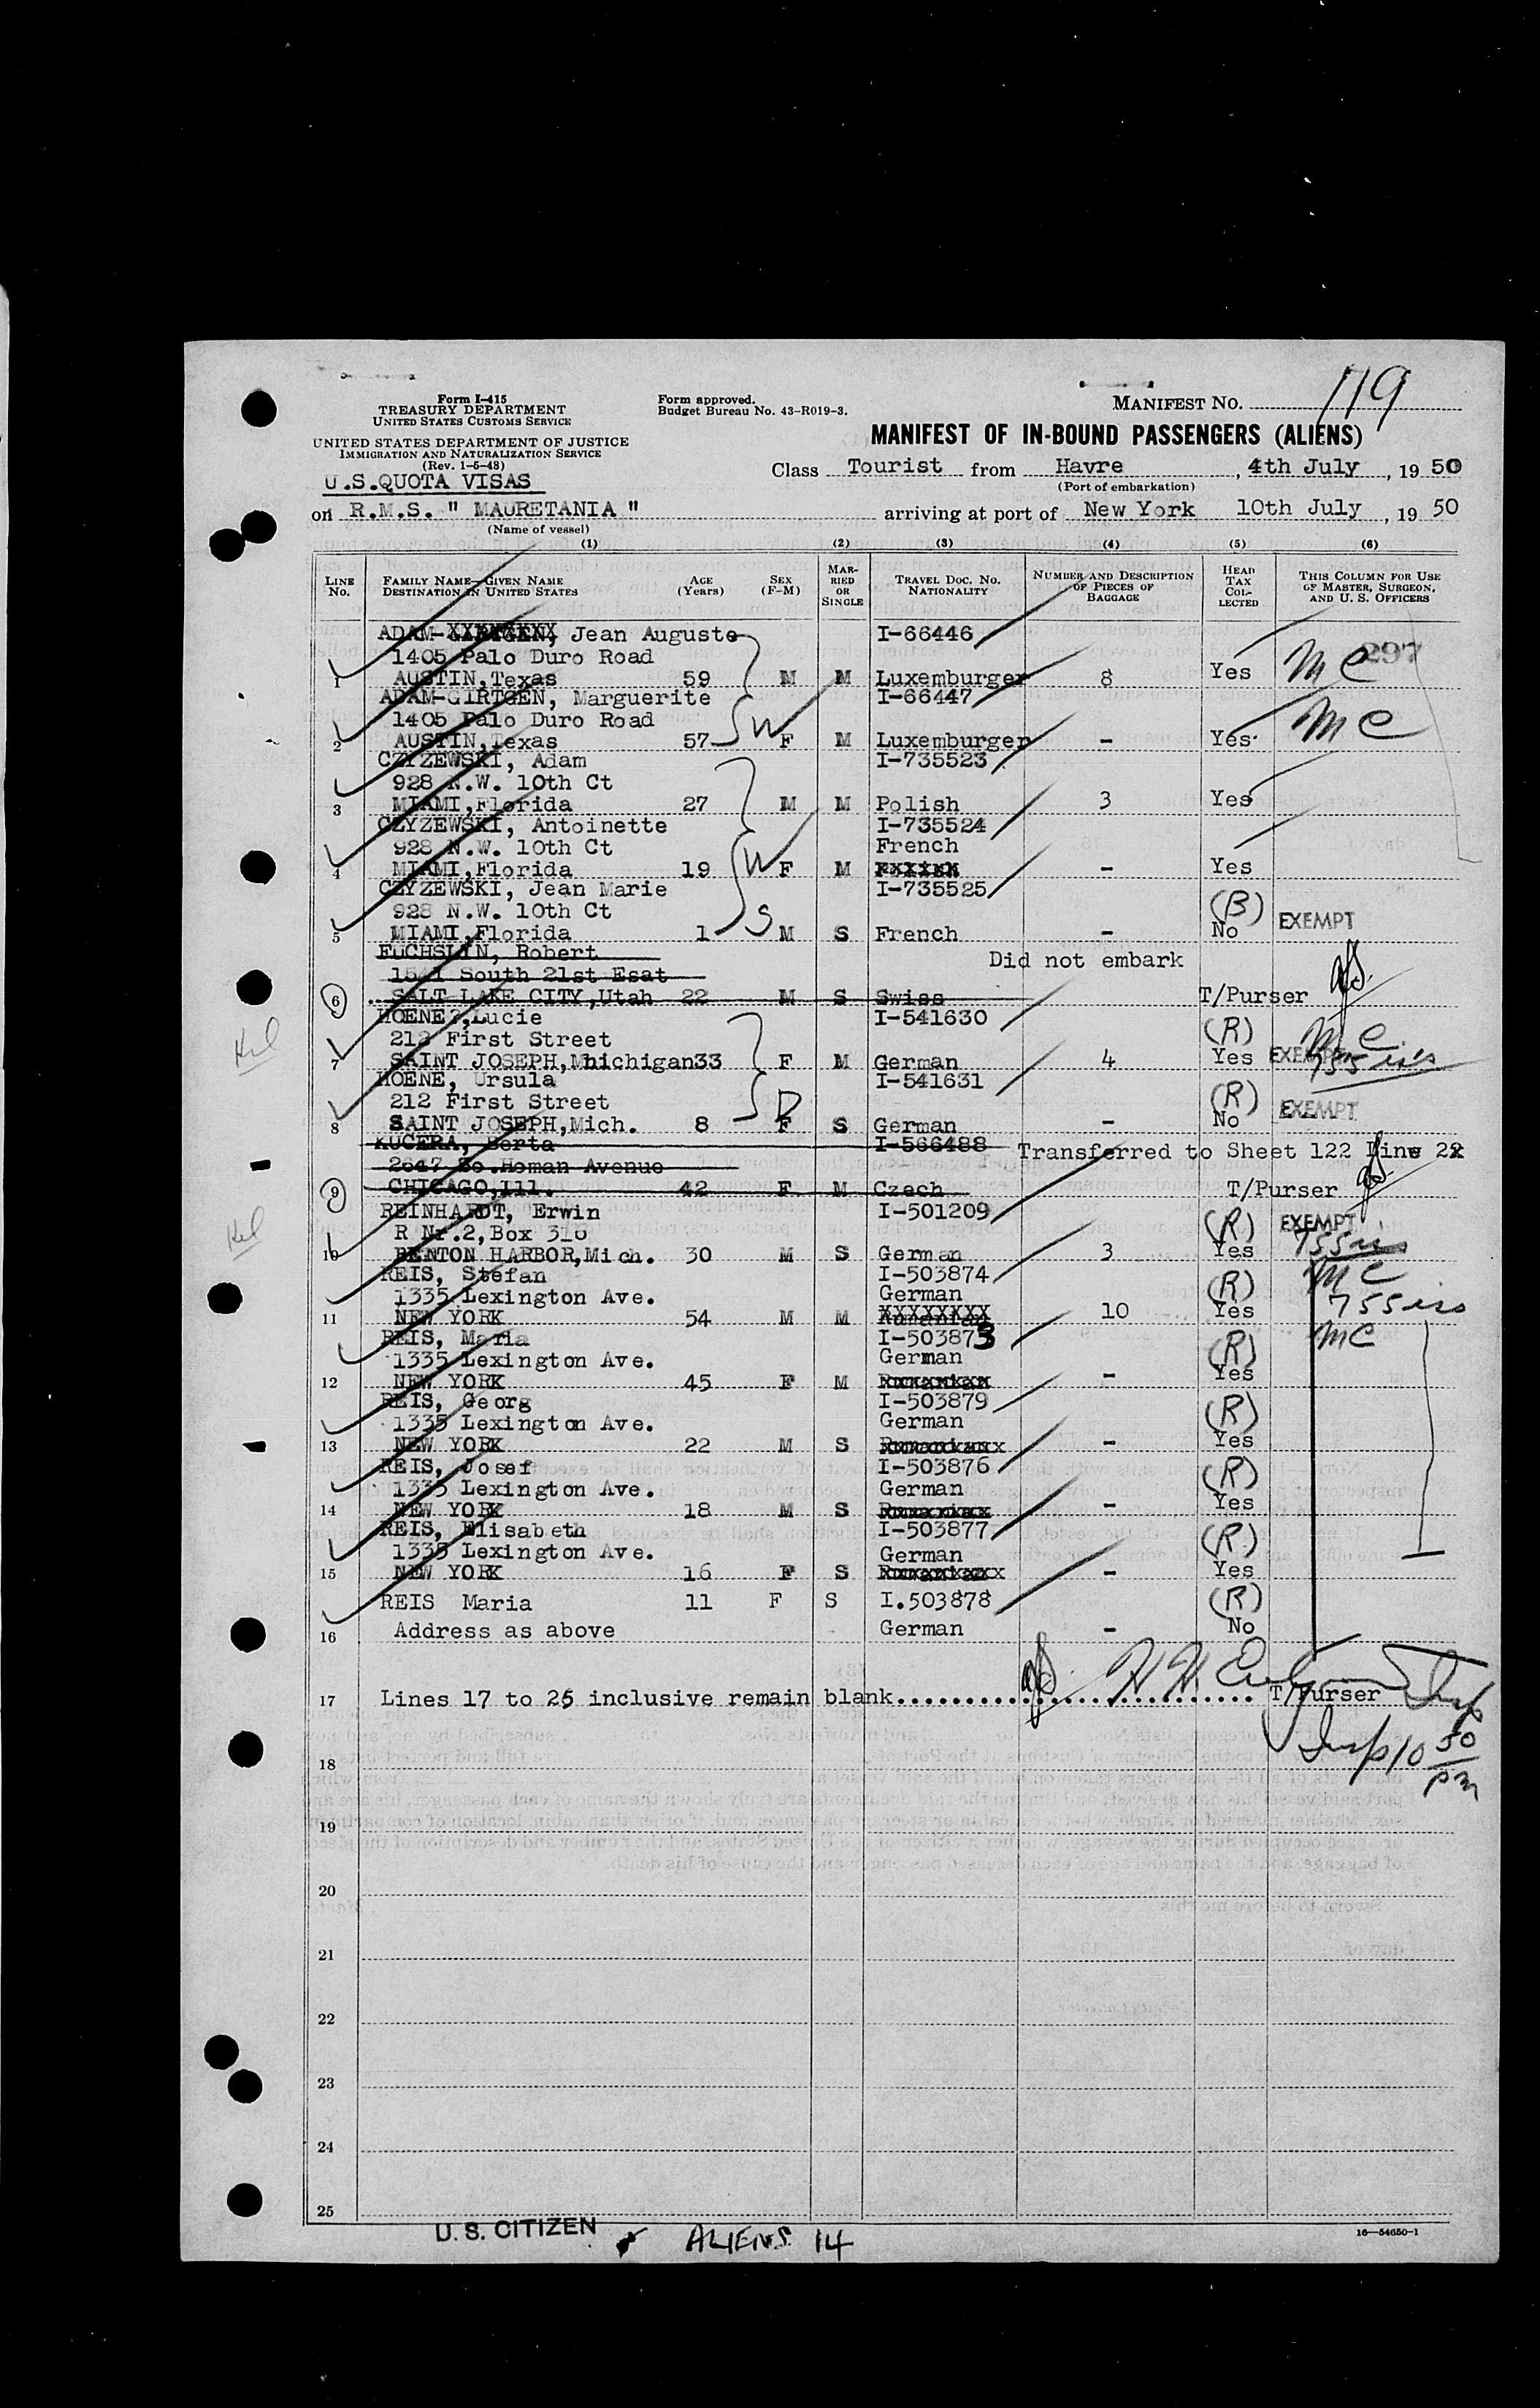 Form I-415
TREASURY DEPARTMENT
UNITED STATES CUSTOMS SERVICE
UNITED STATES DEPARTMENT OF JUSTICE
IMMIGRATION AND NATURALIZATION SERVICE
(Rev. 1-6-48)
Form approved.
Budget Bureau No. 43-R019-3.
MANIFEST NO. 119
MANIFEST OF IN-BOUND PASSENGERS (ALIENS)
U.S.QUOTA VISAS
Class Tourist from Havre, 4th July, 1950
(Port of embarkation)
on R.M.S. " MAURETANIA " arriving at port of New York 10th July, 1950
(Name of vessel)
(1) (2) (3) (4) (5) (6)
LINE No. FAMILY NAME—GIVEN NAME DESTINATION IN UNITED STATES AGE (Years) SEX (F-M) MARRIED OR SINGLE TRAVEL DOC. NO. NATIONALITY NUMBER AND DESCRIPTION OF PIECES OF BAGGAGE HEAD TAX COLLECTED THIS COLUMN FOR USE OF MASTER, SURGEON, AND U. S. OFFICERS
ADAM- Jean Auguste I-66446
1405 Palo Duro Road 297
1 AUSTIN,Texas 59 M M Luxemburger 8 Yes MC
ADAM-GIRTGEN, Marguerite I-66447
1405 Palo Duro Road
2 AUSTIN,Texas 57 W F M Luxemburger - Yes MC
CZYZEWSKI, Adam I-735523
928 N.W. 10th Ct
3 MIAMI,Florida 27 M M Polish 3 Yes
CZYZEWSKI, Antoinette I-735524
928 N.W. 10th Ct French
4 MIAMI,Florida 19 W F M - Yes
CZYZEWSKI, Jean Marie I-735525
928 N.W. 10th Ct (B)
5 MIAMI,Florida 1 S M S French - No EXEMPT
FUCHSLIN, Robert Did not embark
South 21st Esat
6 SALT LAKE CITY,Utah 22 M S Swiss T/Purser
HOENE?,Lucie I-541630
212 First Street (R) MC
7 SAINT JOSEPH,Mhichigan33 F M German 4 Yes EXEMPT
HOENE, Ursula I-541631
212 First Street (R)
8 SAINT JOSEPH,Mich. 8 D F S German - No EXEMPT
KUCERA, Berta I-566488 Transferred to Sheet 122 Line 22
2647 So.Homan Avenue
9 CHICAGO,Ill. 42 F M Czech T/Purser
REINHARDT, Erwin I-501209
R Nr.2,Box 316 (R) EXEMPT
10 BENTON HARBOR,Mich. 30 M S German 3 Yes
REIS, Stefan I-503874 MC
1335 Lexington Ave. German (R)
11 NEW YORK 54 M M XXXXXXXX 10 Yes
REIS, Maria I-503873 MC
1335 Lexington Ave. German (R)
12 NEW YORK 45 F M - Yes
REIS, Georg I-503879
1335 Lexington Ave. German (R)
13 NEW YORK 22 M S - Yes
REIS, Josef I-503876
1335 Lexington Ave. German (R)
14 NEW YORK 18 M S - Yes
REIS, Elisabeth I-503877
1335 Lexington Ave. German (R)
15 NEW YORK 16 F S - Yes
REIS Maria 11 F S I.503878 (R)
16 Address as above German - No
17 Lines 17 to 25 inclusive remain blank.............................. T/Purser
Insp
18 Insp 10 50 pm
19
20
21
22
23
24
25
U. S. CITIZEN
ALIENS 14
16—54650-1